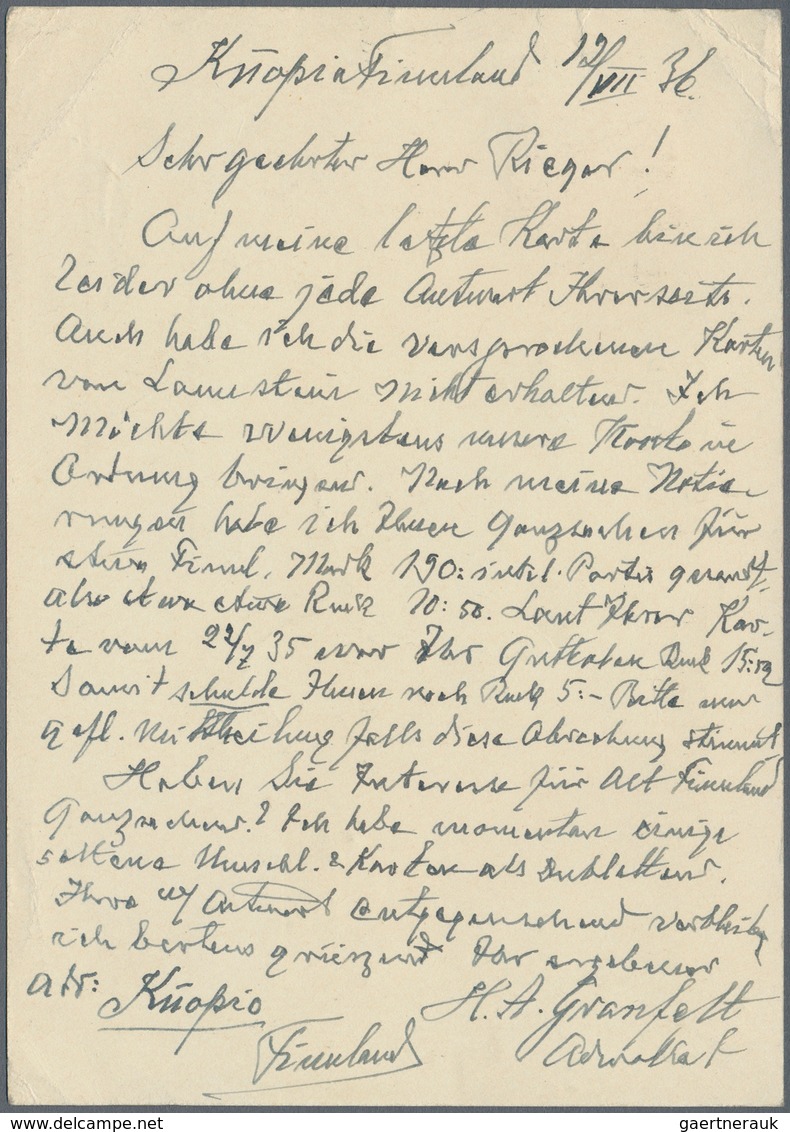 Kuopio Finnland 12/VII 36.
Sehr geehrter Herr Rieger!
Auf meine letzte Karte bin ich
leider ohne jede Antwort Ihrerseits.
Auch habe ich die versprochenen Karten
von Lauenstein nicht erhalten. Ich
möchte wenigstens unsere Konto in
Ordnung bringen. Nach meine Notie-
rungen habe ich Ihnen Ganzsachen für
etwa Finnl. Mark 190: inkl. Porto gesandt,
also etwa Rmk 10:50. Laut Ihrer Kar-
te vom 22/X 35 war Ihr Guthaben Rmk 15:50
Somit schulde Ihnen noch Rmk 5:- Bitte um
gefl. Mittheilung falls diese Abrechnung stimmt.
Haben Sie Interesse für Alt Finnland
Ganzsachen? Ich habe momentan einige
seltene Umschl. & Karten als Dubletten.
Ihre Antwort entgegensehend verbleibe
ich bestens grüszend Ihr ergebener
Adr: Kuopio H. A. Granfelt
Finnland Advokat
gaertnerauk